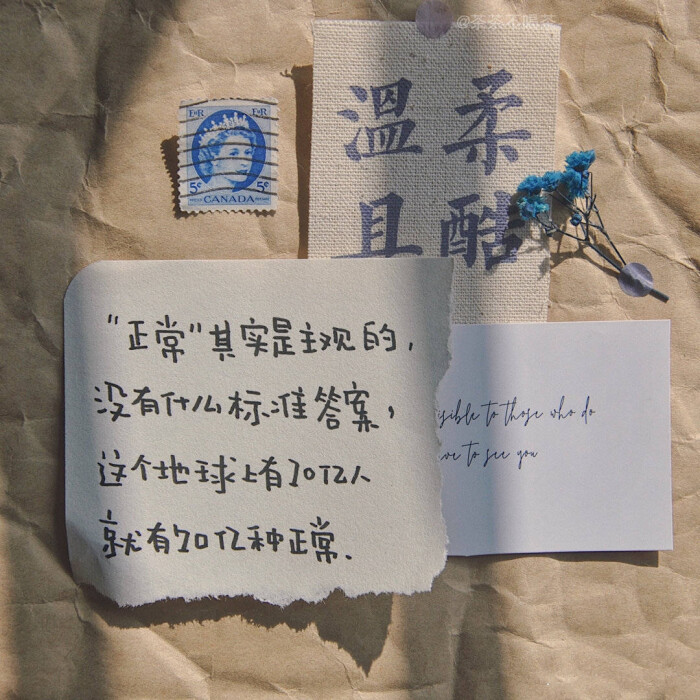 @茶茶不喝茶
EIIR EIIR
5¢ 5¢
CANADA
溫柔
且酷
“正常”其实是主观的，
没有什么标准答案，
这个地球上有70亿人
就有70亿种正常.
to those who do
to see you